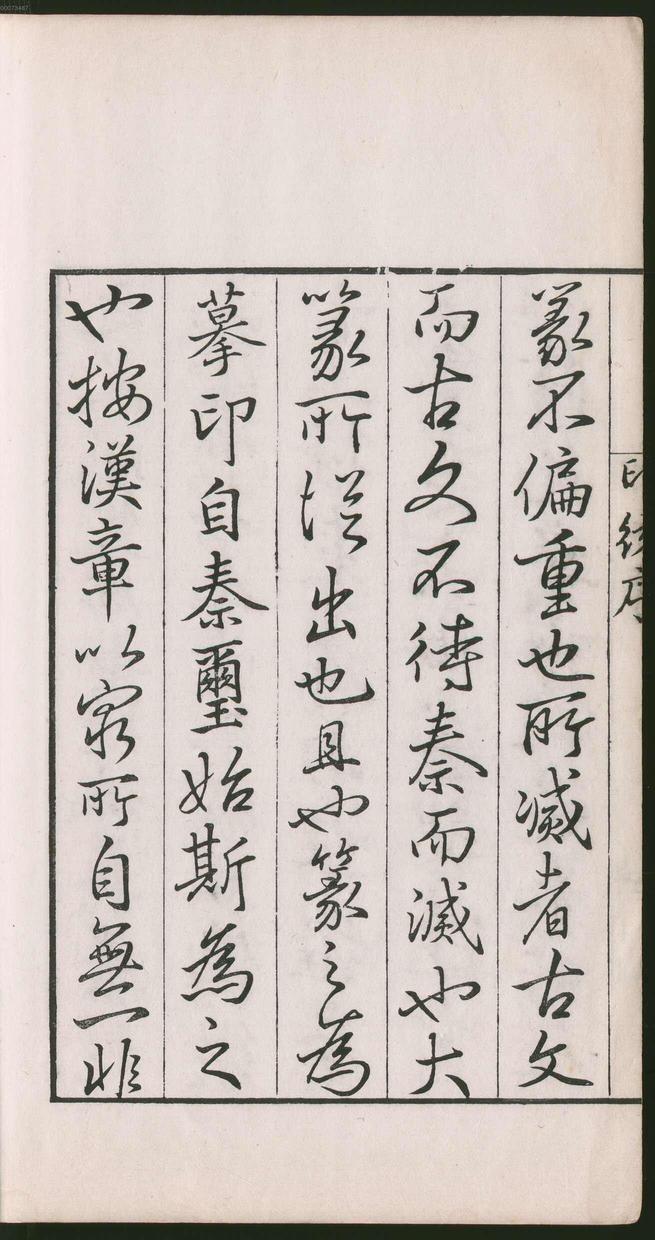 篆不偏重也所滅者古文
而古文不待秦而滅也大
篆所從出也且也篆之為
摹印自秦璽始斯為之
也按漢章以窮所自無一非
印 序
00073467